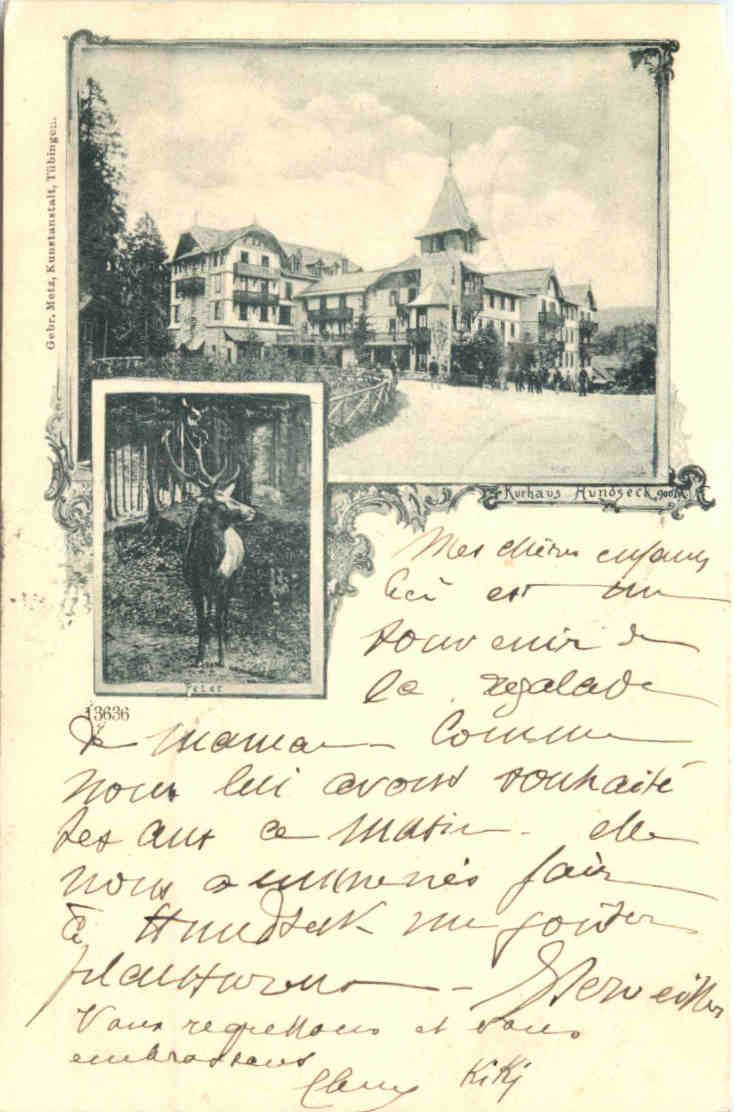 Gebr. Metz, Kunstanstalt, Tübingen.
Kurhaus Hundseck 900M
Peter
13636
Mes chères enfants
Ici est un
souvenir de
la regalade
de maman comme
nous lui avons souhaité
ses ans ce matin - elle
nous a emmenés fair
à Hundseck un goûter
plantureux -
Vous regrettons et vous
embrassons
Kiki